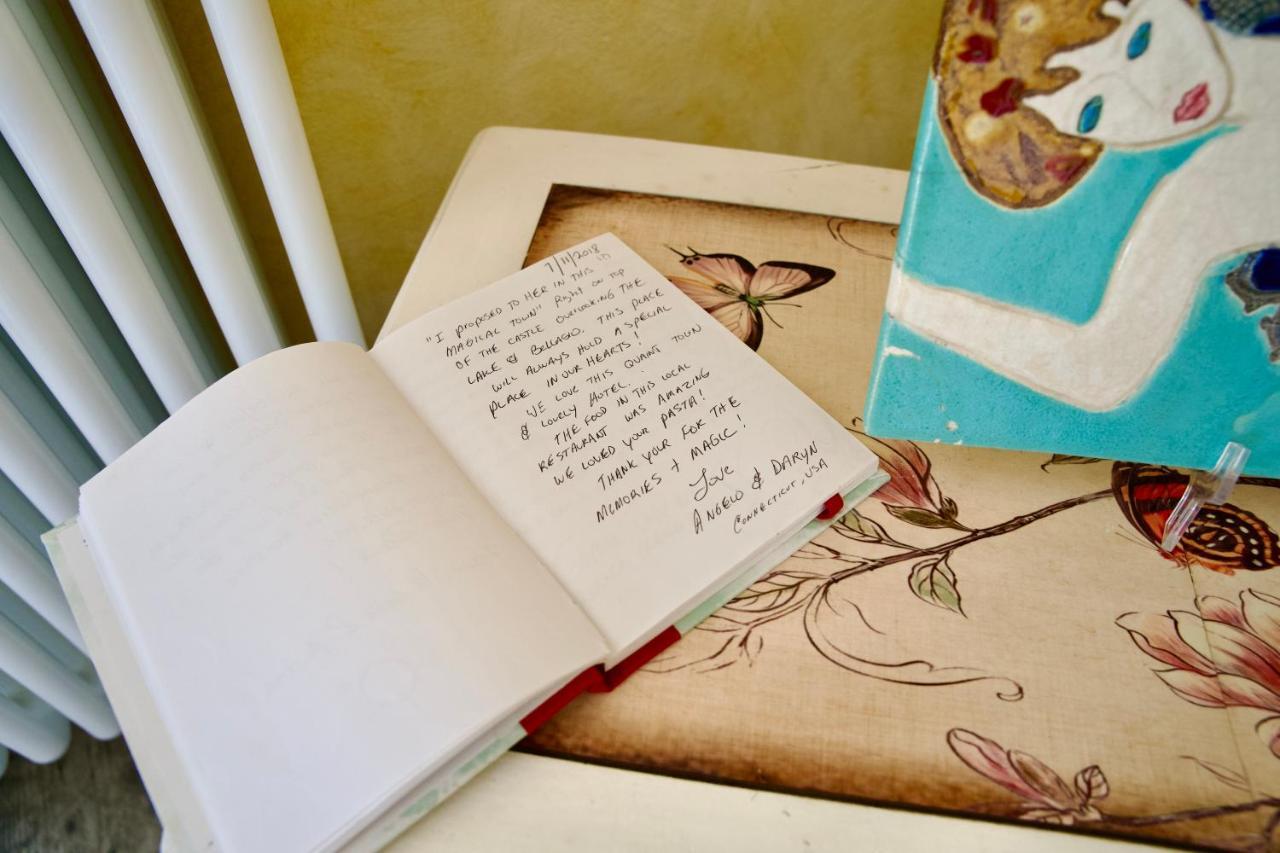 7/11/2018
"I proposed to HER IN THIS
MAGICAL TOWN" Right on top
OF THE CASTLE OVERLOOKING THE
LAKE & BELLAGIO. THIS PLACE
WILL ALWAYS HOLD A SPECIAL
PLACE IN OUR HEARTS!
WE LOVE THIS QUAINT TOWN
& LOVELY HOTEL.
THE FOOD IN THIS LOCAL
RESTAURANT WAS AMAZING
WE LOVED YOUR PASTA!
THANK YOUR FOR THE
MEMORIES + MAGIC!
Love
ANGELO & DARYN
CONNECTICUT, USA